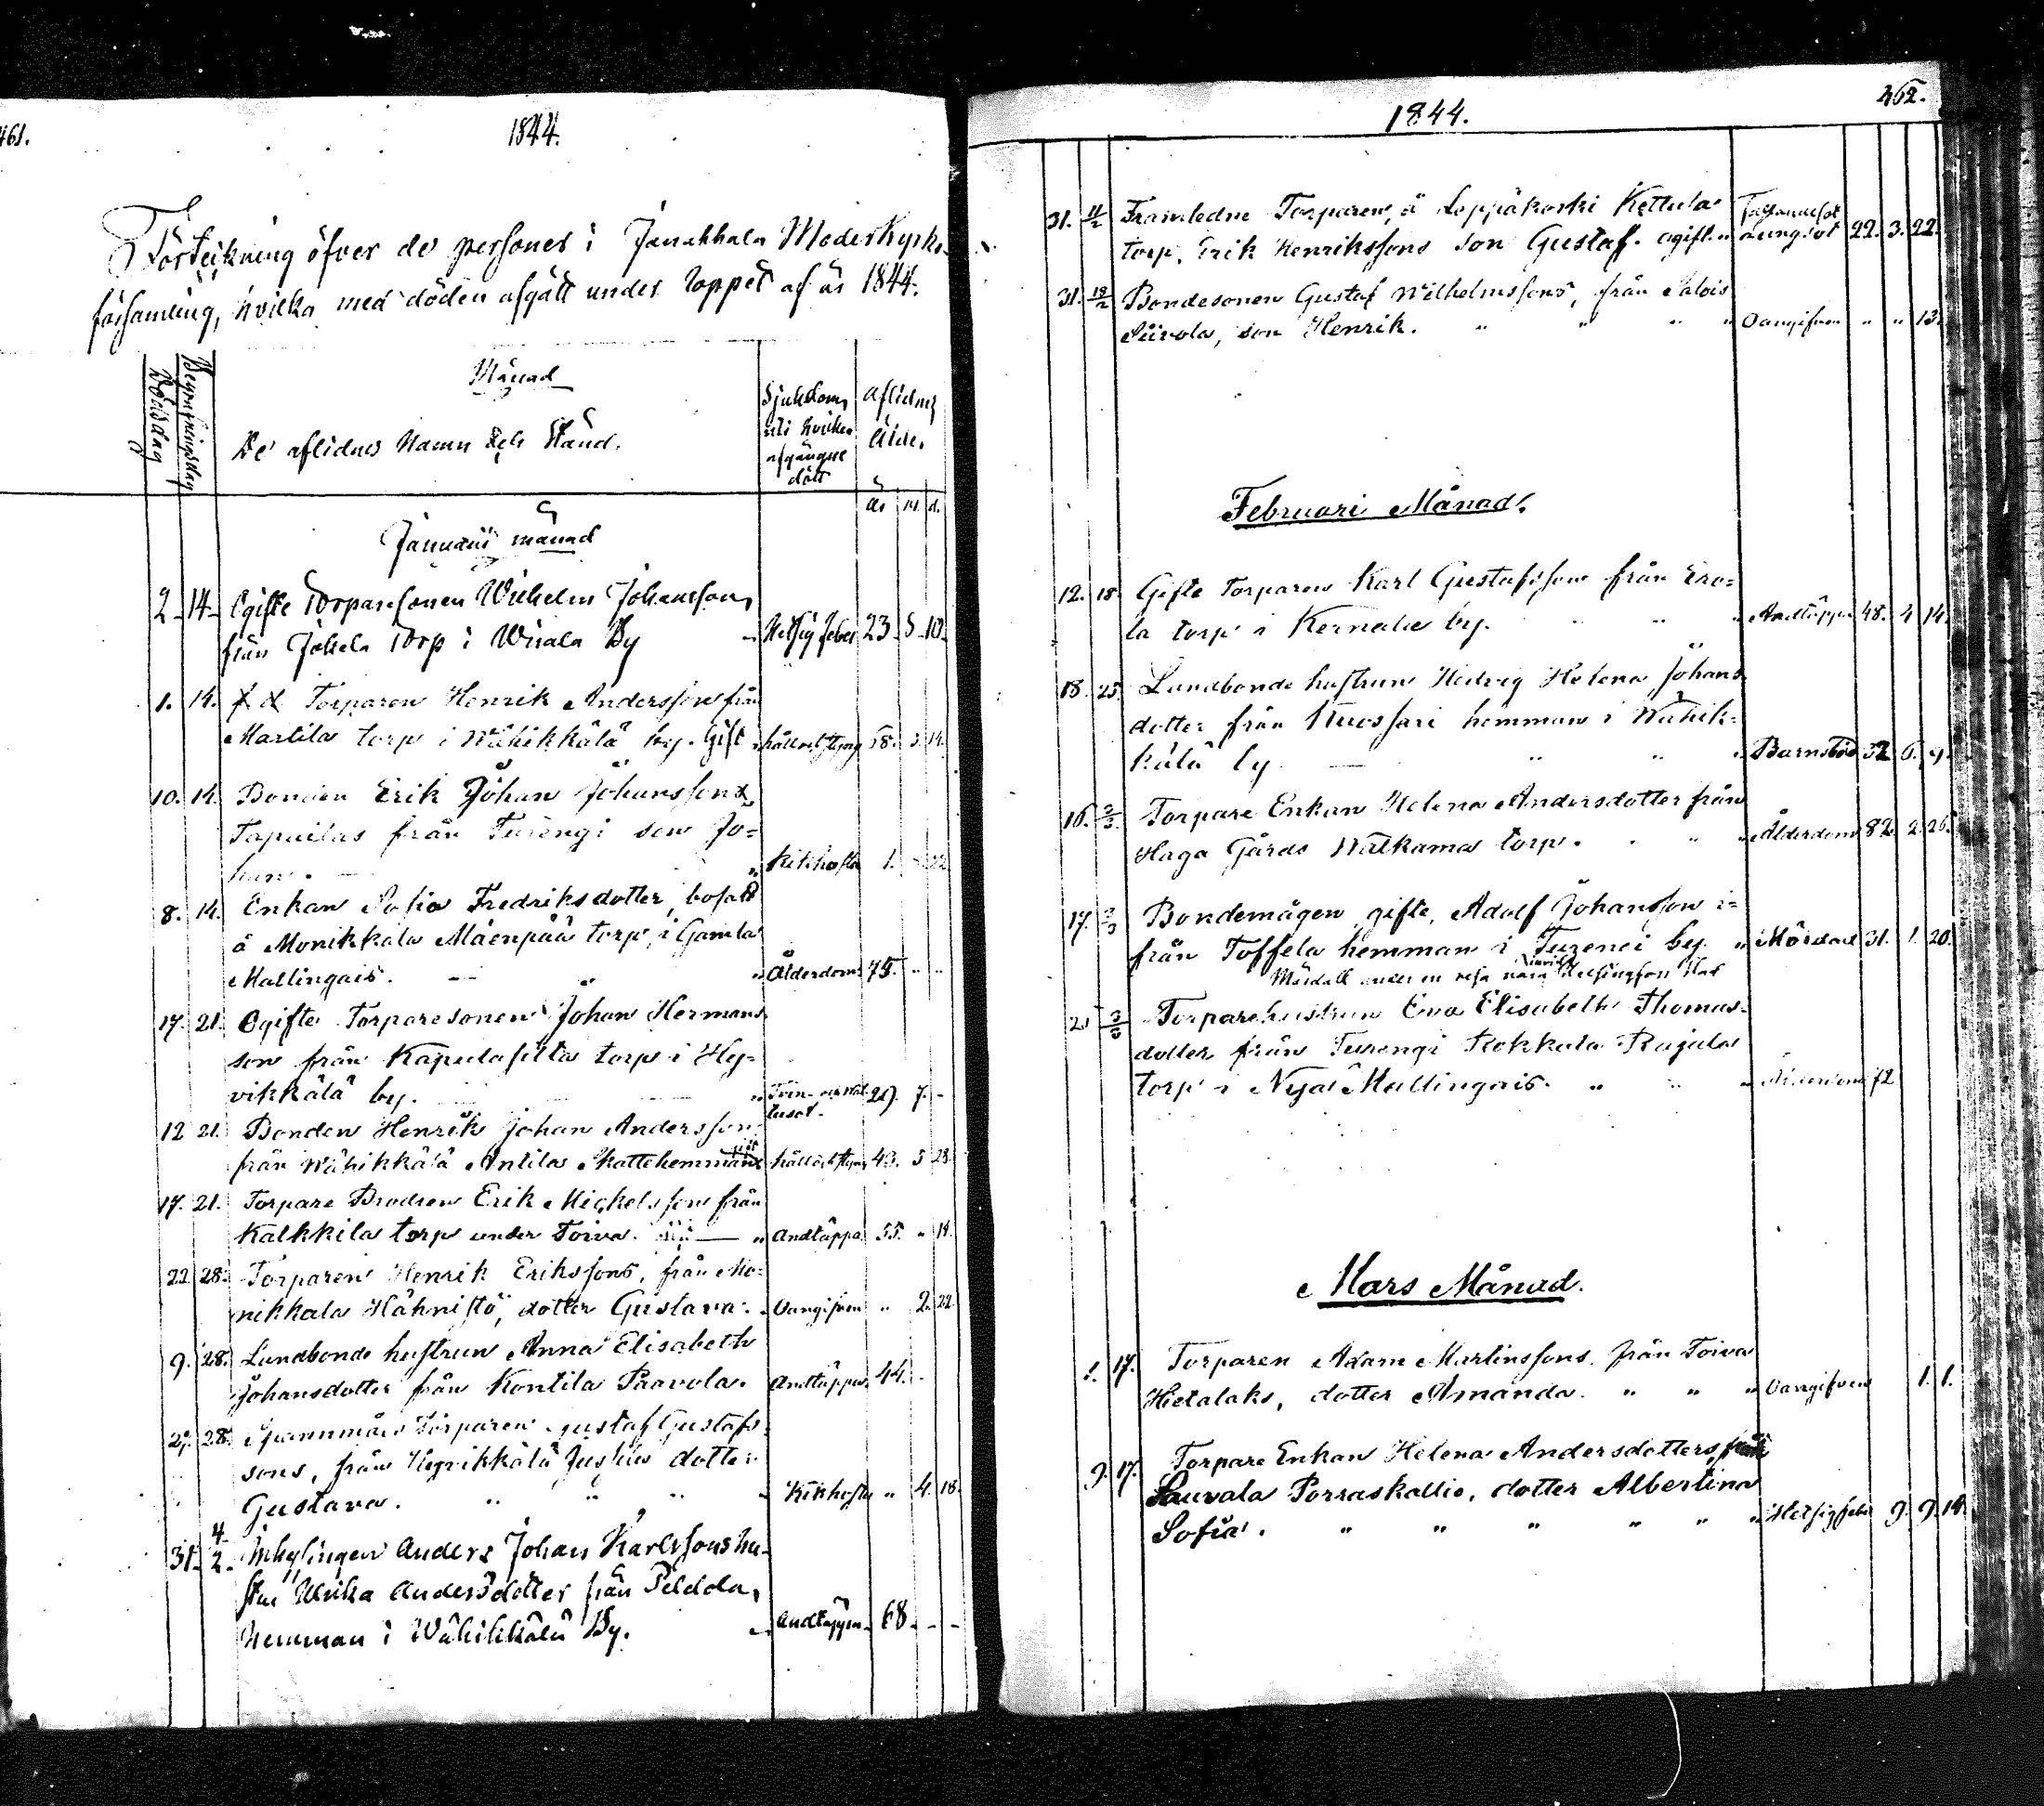 461.
1844.
Förteckning öfver de personer i Janakkala Moderkyrko-
församling, hvilka med döden afgått under loppet af år 1844.
Dödsdag
Begrafningsdag
Månad
De aflidnes Namn och Stånd.
Sjukdom,
uti hvilken
afgångne
dött
Aflidnes
Ålder
år m. d.
Januarii månad
2. 14. Ogifte Torparesonen Wilhelm Johansson,
från Jokela Torp i Wirala By " Hetsig feber 23. 5. 10.
1. 14. f d Torparen Henrik Andersson från
Martila torp i Wähikkälä by. Gift " håll och styng 58. 3. 14.
10. 14. Bonden Erik Johan Johanssons
Tapailas från Turengi son Jo-
han. " Kikhosta 1. " 22
8. 14. Enkan Sofia Fredriksdotter, bosatt
å Monikkala Mäenpää torp, i Gamla
Mallingais. " " Ålderdom 75. " "
17. 21. Ogifte Torparesonen Johan Hermans
son från Kapulasilta torp i Hy-
vikkälä by. " Tvin- och
lusot. 29. 7. -
12 21. Bonden Henrik Johan Andersson
från Wähikkälä Antila Skattehemman gift håll och styng 43. 5 28.
17. 21. Torpare Brodren Erik Michelsson från
Kalkkila torp under Toiva. " Andtäppa 55. " 14.
22. 28. Torparen Henrik Erikssons, från Mo-
nikkala Hähnistö, dotter Gustava. " Oangifven " 2. 22.
9. 28. Landbonde hustrun Anna Elisabeth
Johansdotter från Kontila Paavola. Andtäppa 44. -
27. 28. Spannmåls Torparen Gustaf Gustafs
sons, från Hyvikkälä Jussila dotter
Gustava. " " " " Kikhosta " 4. 18.
31. 4/2 Inhysingen Anders Johan Karlssons hu-
stru Ulrika Andersdotter från Peldola,
hemman i Wähikkälä By. " Andtäppa 68. - -
1844.
462.
31. 11/2 Framledne Torparen, å Leppäkoski Kettula
torp, Erik Henrikssons son Gustaf. ogift " lungsot 22. 3. 22.
31. 18/2 Bondesonen Gustaf Wilhelmssons, från Salois
Siivola, son Henrik. " " " " Oangifven " " 13.
Februari Månad.
12. 18. Gifte Torparen Karl Gustafsson från Ero-
la torp i Kernala by. " " " Andtäppa 48. 4 14.
18. 25. Landbonde hustrun Hedvig Helena Johans
dotter från Kuossari hemman i Wähik-
kälä by. — " " " Barnsbörd 32 6. 9.
16. 3/3. Torpare Enkan Helena Andersdotter från
Haga Gårds Walkama torp. " " " Ålderdom 82. 2. 26.
17. 3/3 Bondemågen, gifte, Adolf Johansson i-
från Toffela hemman i Turengi by. " Mördad 31. 1. 20.
Mördad under en resa nära invid Helsingfors stad
21 3/3 Torparehustrun Eva Elisabeth Thomas-
dotter från Turengi Rokkala Rajala
torp i Nya Mallingais. " " " 72
Mars Månad.
1. 17. Torparen Adam Martinssons från Toiva
Hietalaks, dotter Amanda. " " " Oangifven 1. 1.
9. 17. Torpare Enkan Helena Andersdotters, från
Sauvala Porraskallio, dotter Albertina
Sofia. " " " " " " Hetsig feber 9. 9. 14.